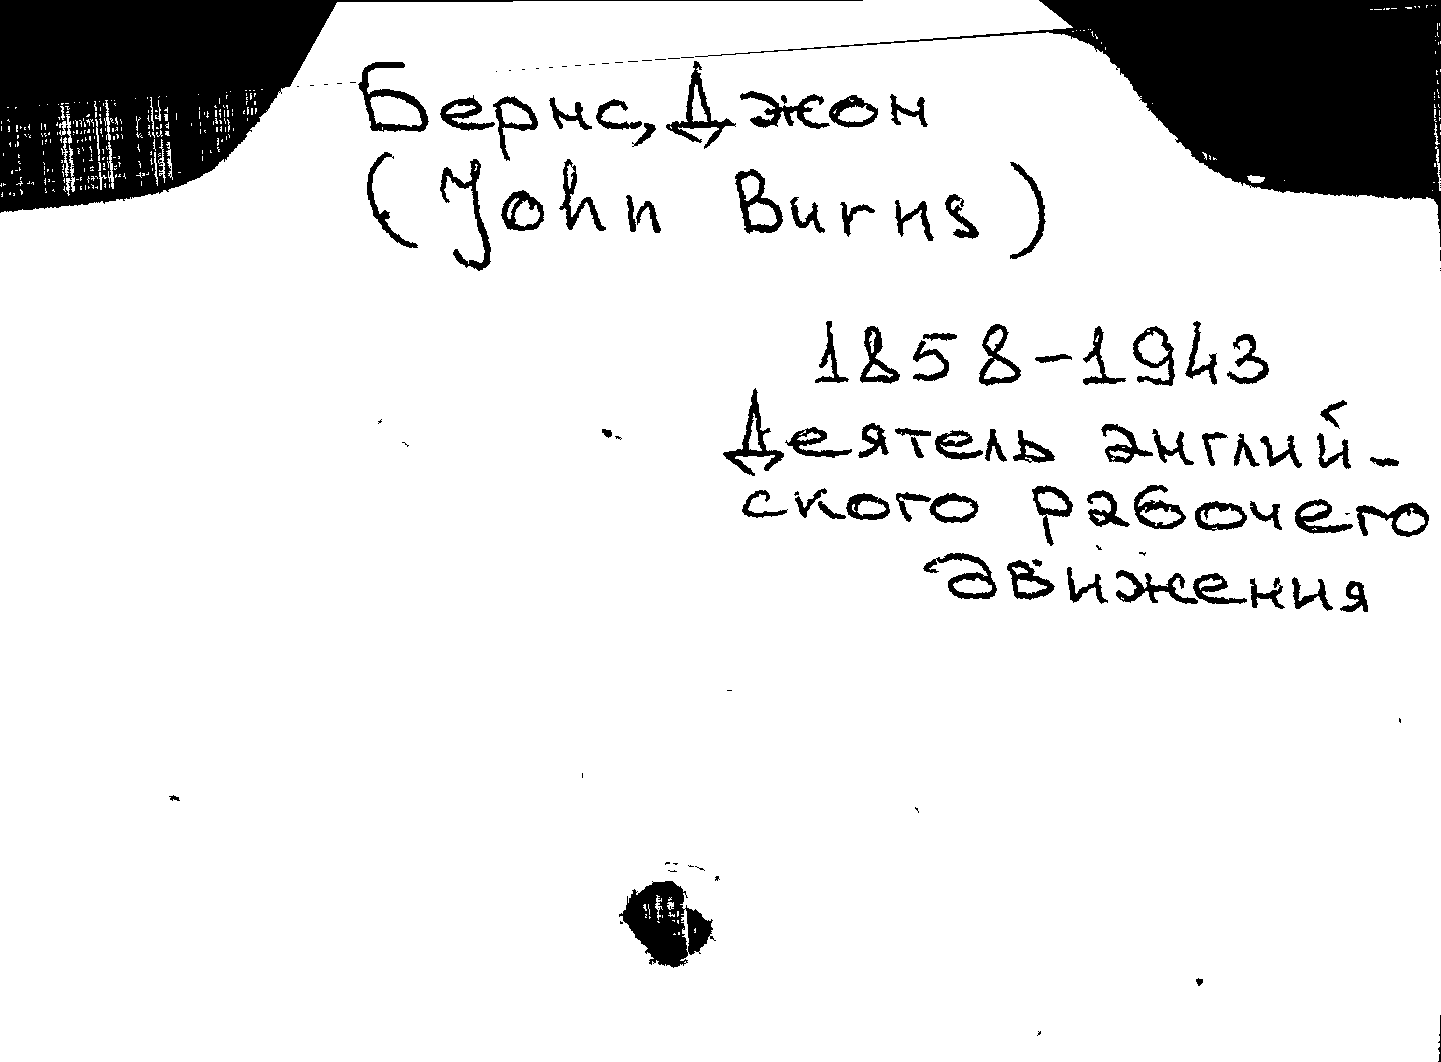 Бернс, Джон
(John Burns)
1858-1943
Деятель англий-
ского рабочего
движения